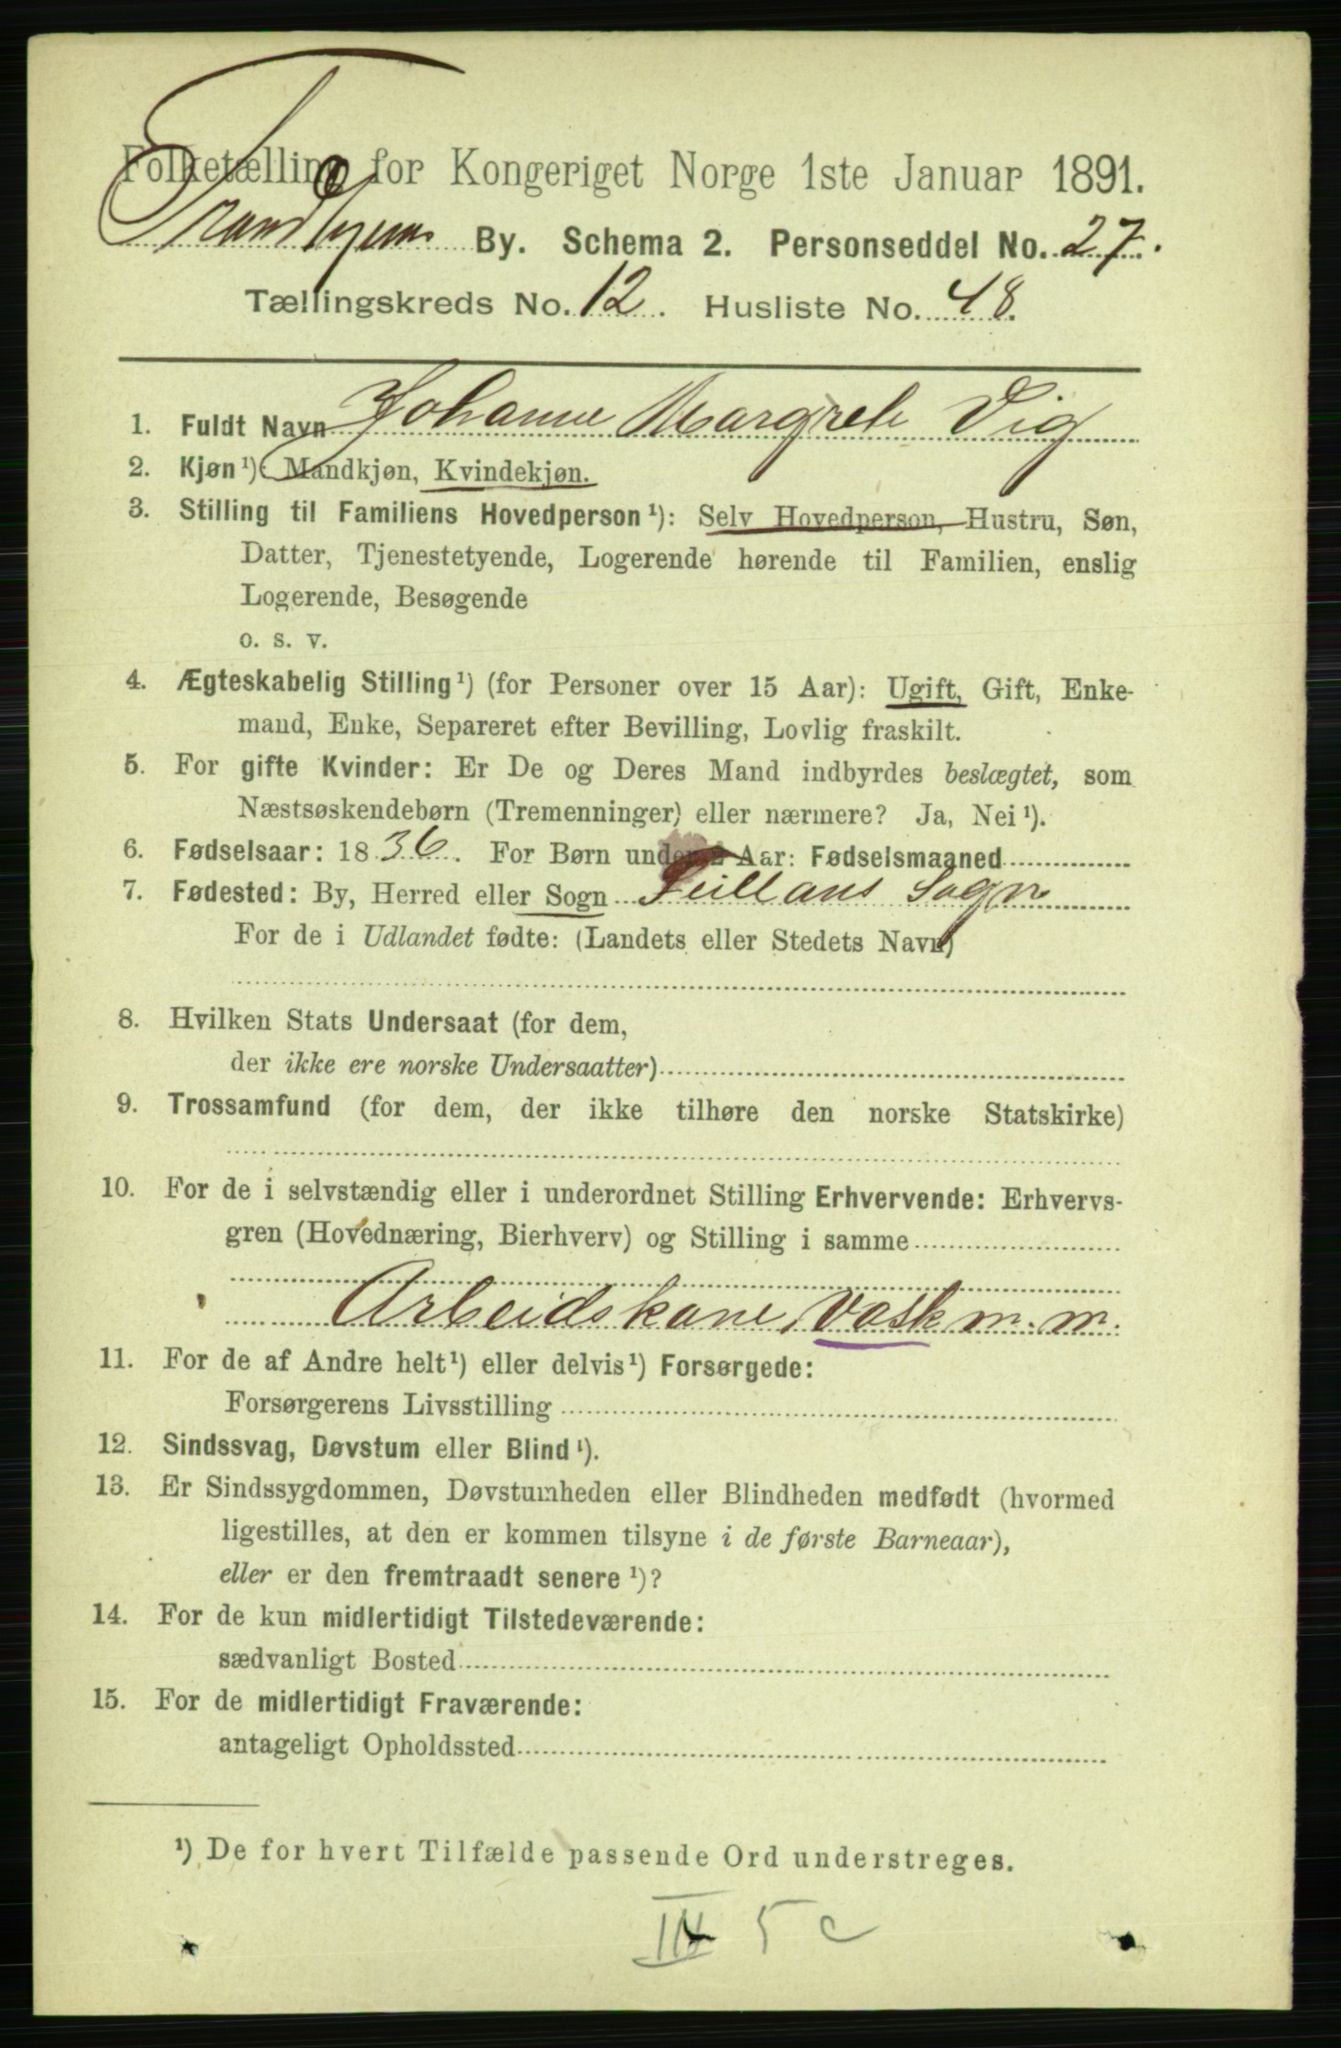 Folketælling for Kongeriget Norge 1ste Januar 1891.
Trondhjems By. Schema 2. Personseddel No. 27.
Tællingskreds No. 12. Husliste No. 48.
1. Fuldt Navn Johanne Margrete Vig
2. Kjøn¹): Mandkjøn, Kvindekjøn.
3. Stilling til Familiens Hovedperson¹): Selv Hovedperson, Hustru, Søn,
Datter, Tjenestetyende, Logerende hørende til Familien, enslig
Logerende, Besøgende
o. s. v.
4. Ægteskabelig Stilling¹) (for Personer over 15 Aar): Ugift, Gift, Enke-
mand, Enke, Separeret efter Bevilling, Lovlig fraskilt.
5. For gifte Kvinder: Er De og Deres Mand indbyrdes beslægtet, som
Næstsøskendebørn (Tremenninger) eller nærmere? Ja, Nei¹).
6. Fødselsaar: 1836. For Børn under 2 Aar: Fødselsmaaned
7. Fødested: By, Herred eller Sogn Fillans Sogn
For de i Udlandet fødte: (Landets eller Stedets Navn)
8. Hvilken Stats Undersaat (for dem,
der ikke ere norske Undersaatter)
9. Trossamfund (for dem, der ikke tilhøre den norske Statskirke)
10. For de i selvstændig eller i underordnet Stilling Erhvervende: Erhvervs-
gren (Hovednæring, Bierhverv) og Stilling i samme
Arbeidskone, Vask m. m.
11. For de af Andre helt¹) eller delvis¹) Forsørgede:
Forsørgerens Livsstilling
12. Sindssvag, Døvstum eller Blind¹).
13. Er Sindssygdommen, Døvstumheden eller Blindheden medfødt (hvormed
ligestilles, at den er kommen tilsyne i de første Barneaar),
eller er den fremtraadt senere¹)?
14. For de kun midlertidigt Tilstedeværende:
sædvanligt Bosted
15. For de midlertidigt Fraværende:
antageligt Opholdssted
¹) De for hvert Tilfælde passende Ord understreges.
5 c